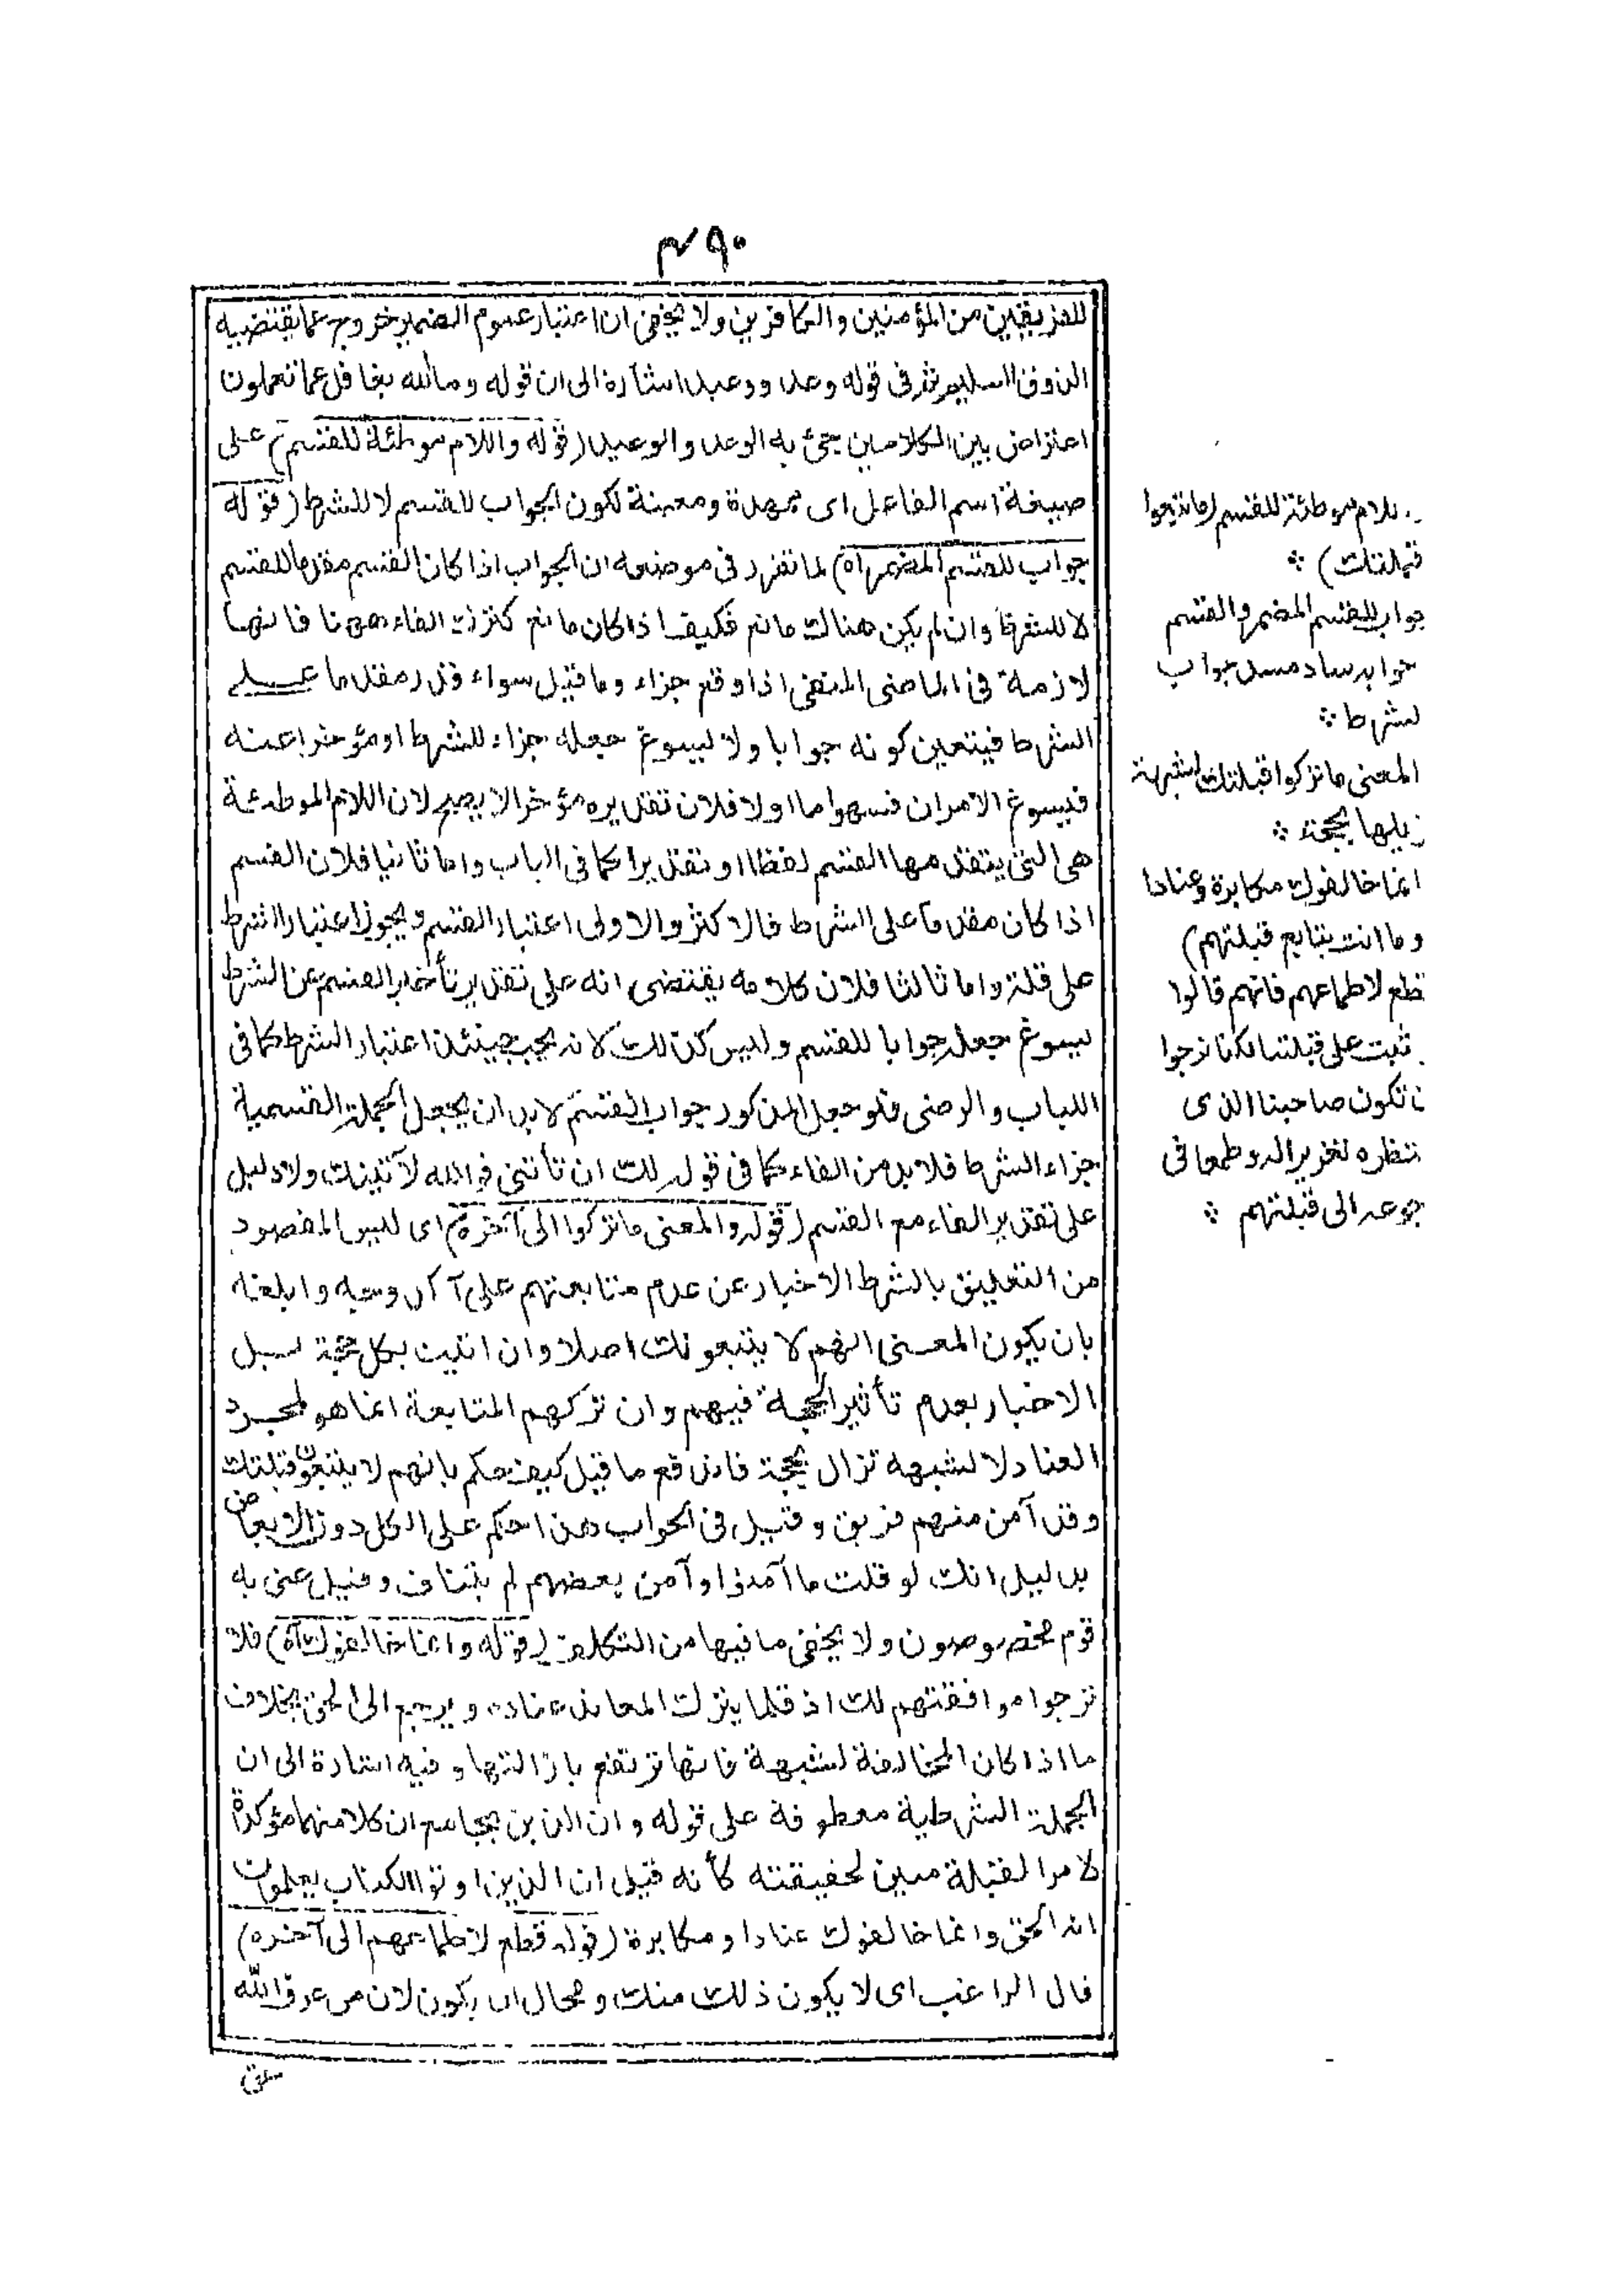 ٤٩٠
للفريقين من المؤمنين والكافرين ولا يخفى ان اعتبار عموم الضمير خروج عما يقتضيه
الذوق السليم ثم فى قوله وعد ووعيد اشارة الى ان قوله وما الله بغافل عما تعملون
اعتراض بين الكلامين جئ به الوعد والوعيد (قوله واللام موطئة للقسم) على
صيغة اسم الفاعل اى ممهدة ومعينة لكون الجواب للقسم لا للشرط (قوله
جواب للقسم المضمر اه) لما تقرر فى موضعه ان الجواب اذا كان القسم مقدما للقسم
لا للشرط وان لم يكن هناك مانع فكيف اذا كان مانع كترك الفاء ههنا فانها
لازمة فى الماضى المنفى اذا وقع جزاء وما قيل سواء قدر مقدما على
الشرط فيتعين كونه جوابا ولا يسوغ جعله جزاء للشرط او مؤخرا عنه
فيسوغ الامران فسهو اما اولا فلان تقديره مؤخرا لا يصح لان اللام الموطئة
هى التى يتقدمها القسم لفظا او تقديرا كما فى الباب واما ثانيا فلان القسم
اذا كان مقدما على الشرط فالاكثر والاولى اعتبار القسم ويجوز اعتبار الشرط
على قلة واما ثالثا فلان كلامه يقتضى انه على تقدير تأخير القسم عن الشرط
يسوغ جعله جوابا للقسم وليس كذلك لانه يجب حينئذ اعتبار الشرط كما فى
اللباب والرضى فلو جعل المذكور جواب القسم لا بد ان يجعل الجملة القسمية
جزاء الشرط فلا بد من الفاء كما فى قوله لك ان تأتنى فوالله لآتينك ولا دليل
على تقدير الفاء مع القسم (قوله والمعنى ما تركوا الى آخره) اى ليس المقصود
من التعليق بالشرط الاخبار عن عدم متابعتهم على آكد وجه وابلغه
بان يكون المعنى انهم لا يتبعونك اصلا وان اتيت بكل حجة بل
الاخبار بعدم تأثير الحجة فيهم وان تركهم المتابعة انما هو لمجرد
العناد لا لشبهة تزال بحجة فاندفع ما قيل كيف حكم بانهم لا يتبعون قبلتك
وقد آمن منهم فريق وقيل فى الجواب هذا حكم على الكل دون الابعاض
بدليل انك لو قلت ما آمنوا وآمن بعضهم لم يتناف وقيل عنى به
قوم مخصوصون ولا يخفى ما فيها من التكلف (قوله وانما خالفوك اه) فلا
ترجوا موافقتهم لك اذ قلما يترك المعاند عناده ويرجع الى الحق بخلاف
ما اذا كان المخالفة لشبهة فانها ترتفع بازالتها وفيه اشارة الى ان
الجملة الشرطية معطوفة على قوله وان الذين بجامع ان كلا منهما مؤكدة
لامر القبلة مبين لحقيقته كأنه قيل ان الذين اوتوا الكتاب يعلمون
انه الحق وانما خالفوك عنادا ومكابرة (قوله قطع لاطماعهم الى آخره)
قال الراغب اى لا يكون ذلك منك ومحال ان يكون لان من عرف الله
واللام موطئة للقسم (ما تبعوا
قبلتك) ❖
جواب للقسم المضمر والقسم
جوابه ساد مسد جواب
لشرط ❖
المعنى ما تركوا قبلتك لشبهة
زيلها بحجة ❖
انما خالفوك مكابرة وعنادا
وما انت بتابع قبلتهم)
قطع لاطماعهم فانهم قالوا
ثبت على قبلتنا لكنا نرجوا
ن تكون صاحبنا الذى
نتظره تغرير اله وطمعا فى
جوعه الى قبلتهم ❖